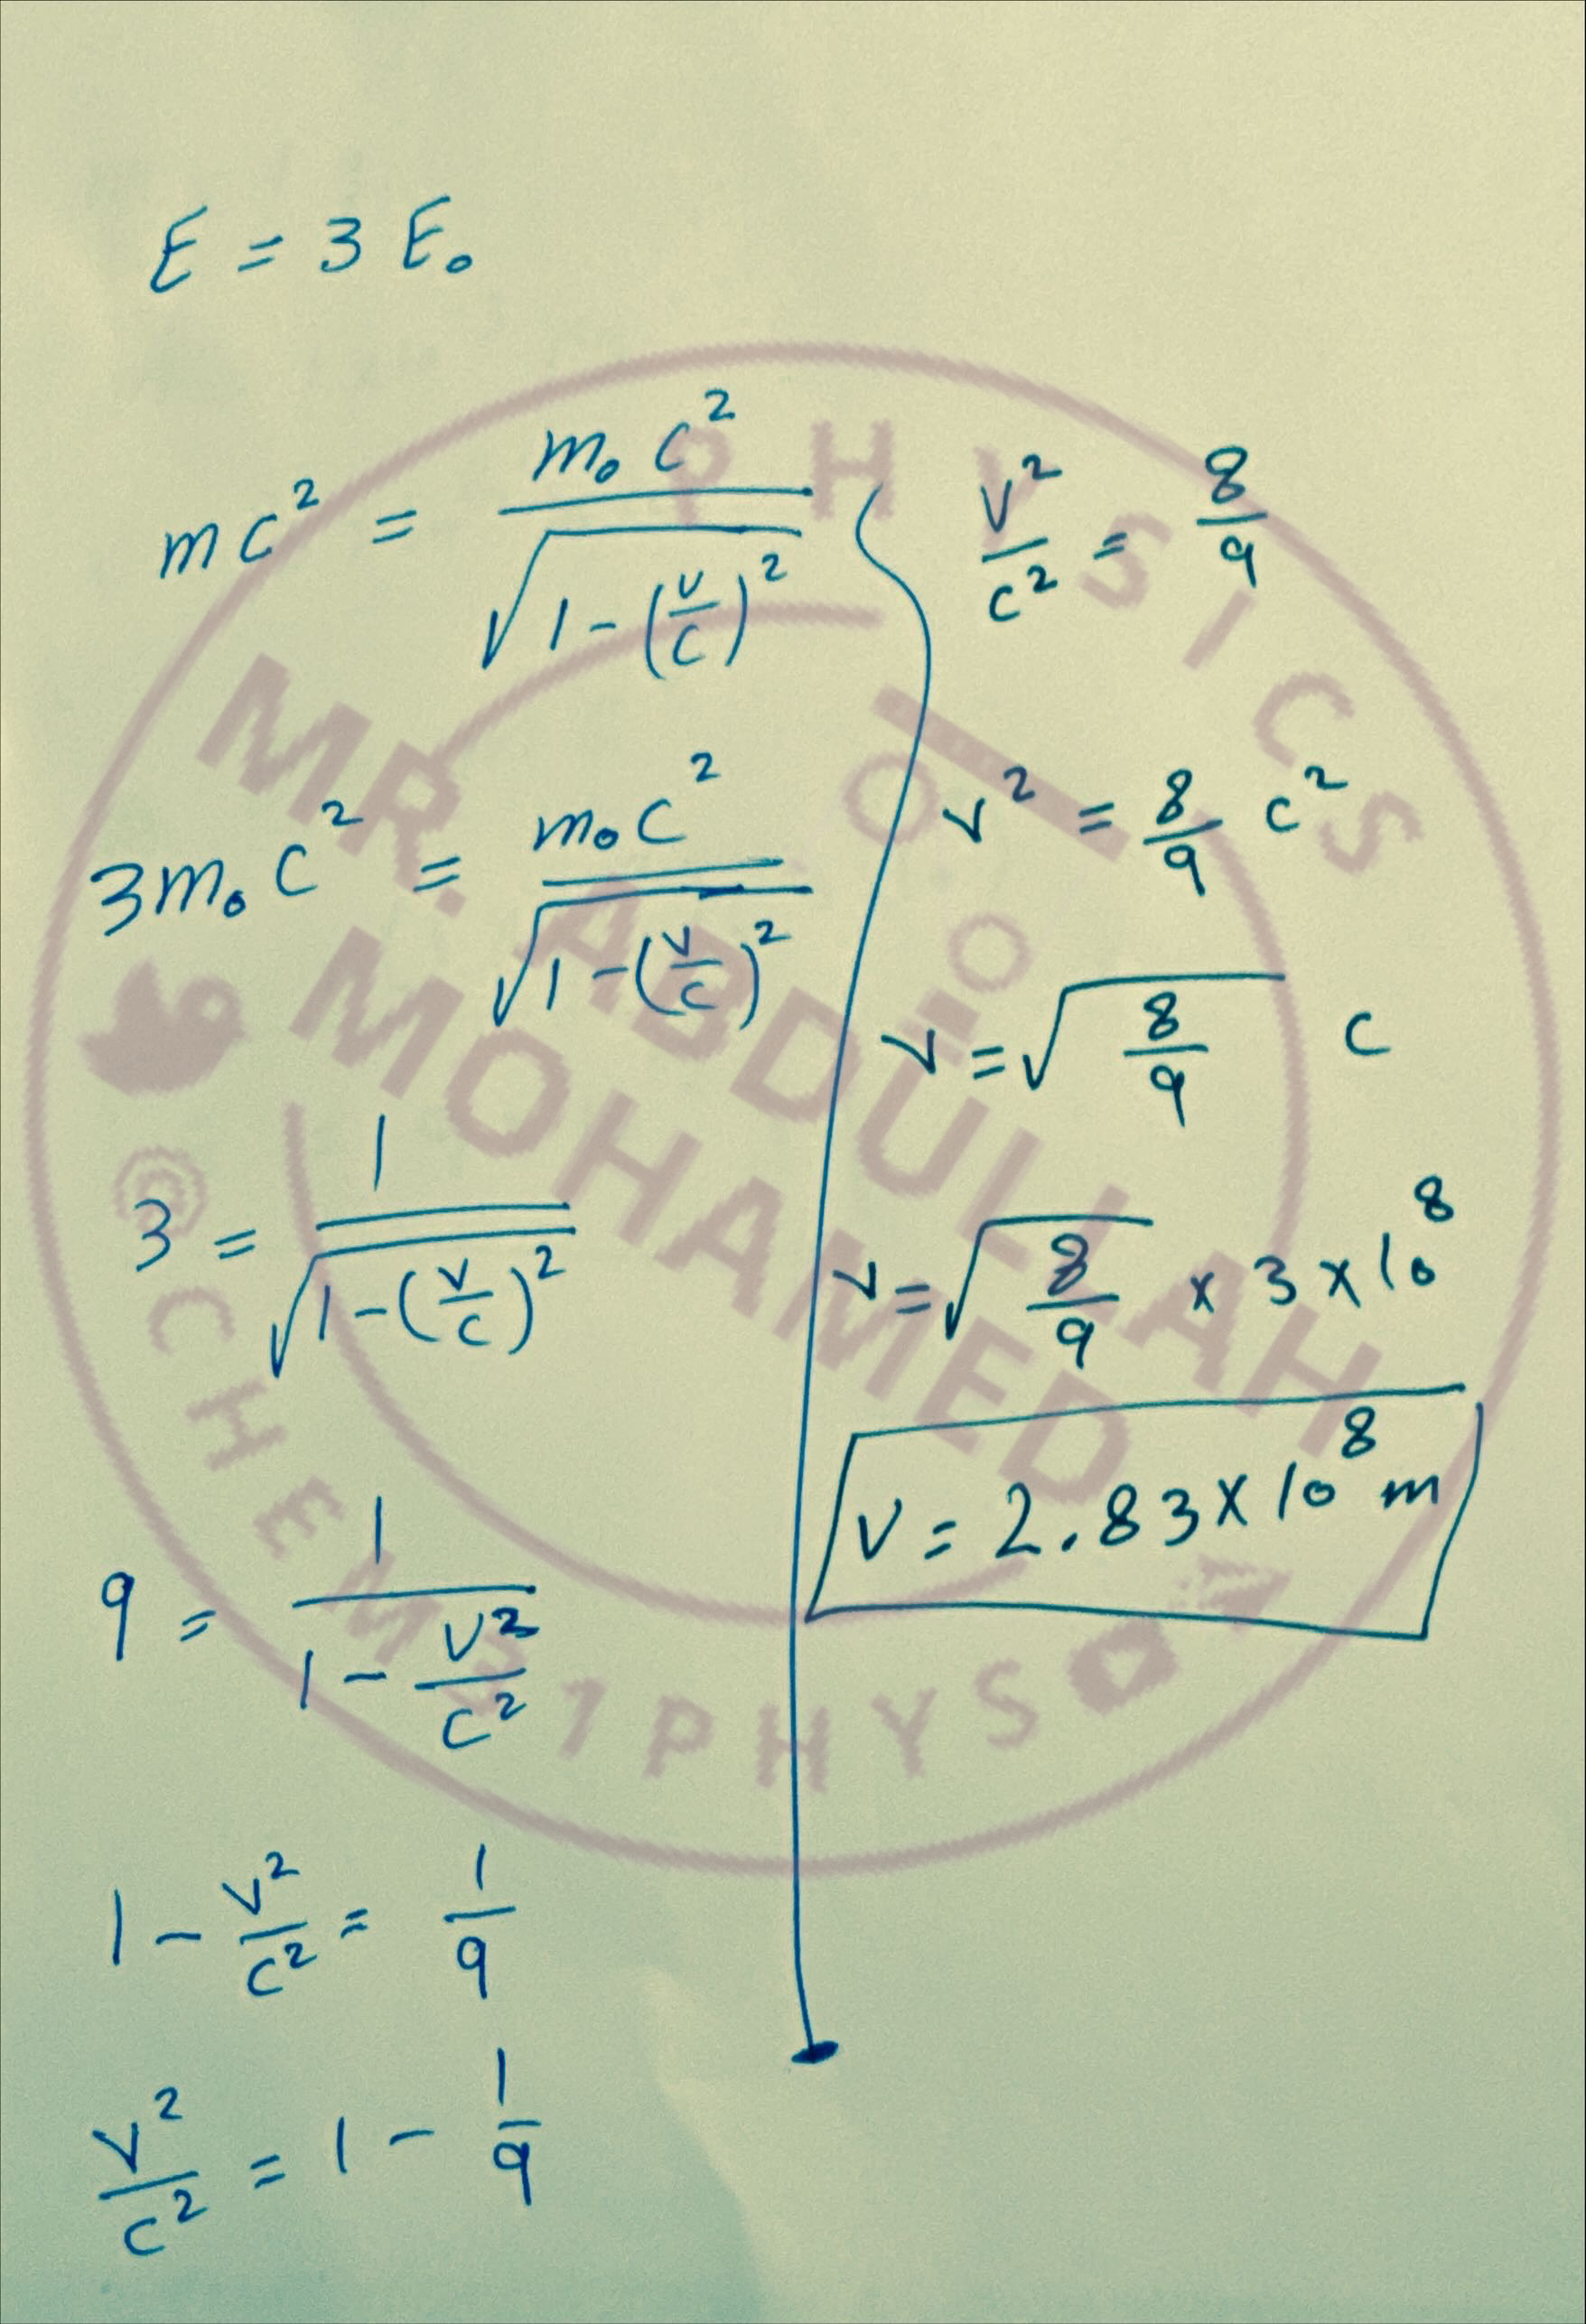 E = 3 E₀
mc² = m₀c² / √(1 - (v/c)²)
3m₀c² = m₀c² / √(1 - (v/c)²)
3 = 1 / √(1 - (v/c)²)
9 = 1 / (1 - v²/c²)
1 - v²/c² = 1/9
v²/c² = 1 - 1/9
v²/c² = 8/9
v² = 8/9 c²
v = √(8/9) c
v = √(8/9) x 3 x 10⁸
v = 2.83 x 10⁸ m
PHYSICS
MR. ABDULLAH
MOHAMED